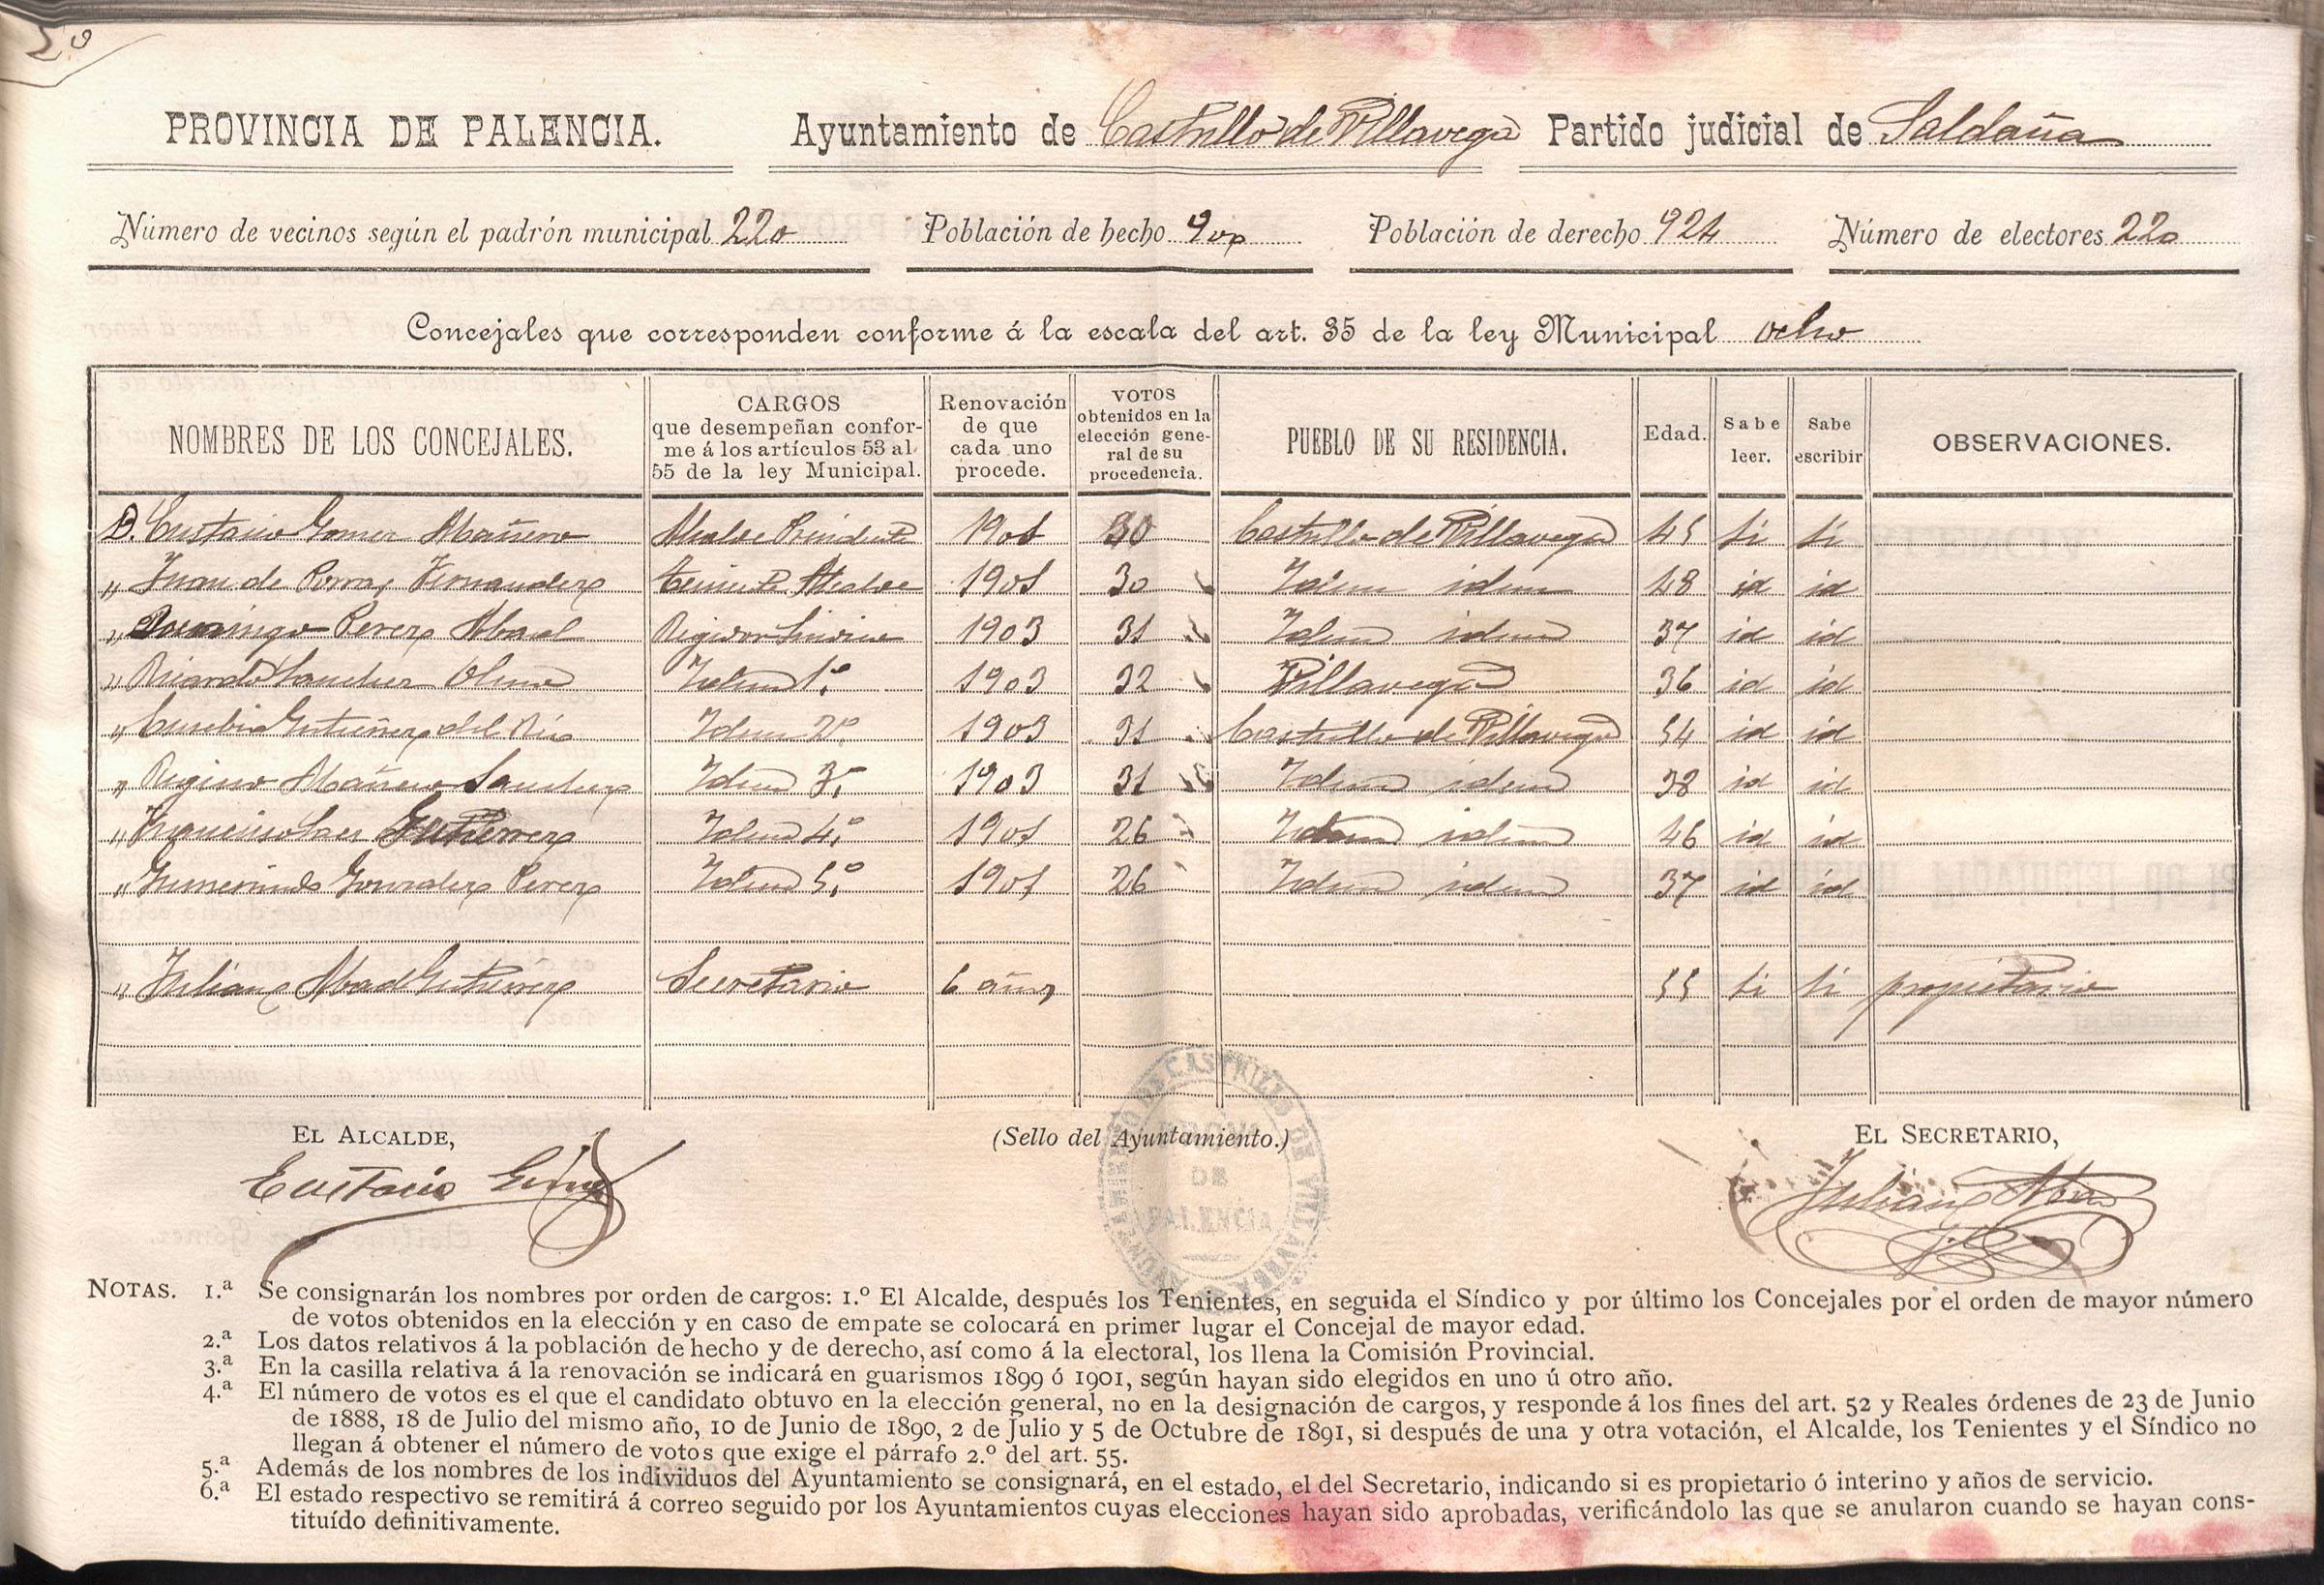 2º
PROVINCIA DE PALENCIA. Ayuntamiento de Castrillo de Villavega Partido judicial de Saldaña
Número de vecinos según el padrón municipal 220 Población de hecho Población de derecho 924 Número de electores 220
Concejales que corresponden conforme á la escala del art. 35 de la ley Municipal ocho
NOMBRES DE LOS CONCEJALES. CARGOS que desempeñan conforme á los artículos 53 al 55 de la ley Municipal. Renovación de que cada uno procede. VOTOS obtenidos en la elección general de su procedencia. PUEBLO DE SU RESIDENCIA. Edad. Sabe leer. Sabe escribir OBSERVACIONES.
D. Eustasio Gomez Abañeno Alcalde Presidente 1901 30 Castrillo de Villavega 45 si si
" Juan de Porras Fernandez Teniente Alcalde 1901 30 Idem idem 48 id id
" Domingo Perez Abad Regidor Sindico 1903 31 Idem idem 37 id id
" Ricardo Sanchez Olmo Idem 1º 1903 32 Villavega 36 id id
" Eusebio Gutierrez del Rio Idem 2º 1903 31 Castrillo de Villavega 54 id id
" Regino Abañeno Sanchez Idem 3º 1903 31 Idem idem 38 id id
" Gutierrez Idem 4º 1901 26 Idem idem 46 id id
" Gumersindo Gonzalez Perez Idem 5º 1901 26 Idem idem 37 id id
" Julian Abad Gutierrez Secretario 6 años 55 si si propietario
EL ALCALDE, (Sello del Ayuntamiento.) EL SECRETARIO,
Eustasio Gomez Julian Abad
AYUNTAMIENTO DE CASTRILLO DE VILLAVEGA
DE
PALENCIA
NOTAS. 1.ª Se consignarán los nombres por orden de cargos: 1.º El Alcalde, después los Tenientes, en seguida el Síndico y por último los Concejales por el orden de mayor número
de votos obtenidos en la elección y en caso de empate se colocará en primer lugar el Concejal de mayor edad.
2.ª Los datos relativos á la población de hecho y de derecho, así como á la electoral, los llena la Comisión Provincial.
3.ª En la casilla relativa á la renovación se indicará en guarismos 1899 ó 1901, según hayan sido elegidos en uno ú otro año.
4.ª El número de votos es el que el candidato obtuvo en la elección general, no en la designación de cargos, y responde á los fines del art. 52 y Reales órdenes de 23 de Junio
de 1888, 18 de Julio del mismo año, 10 de Junio de 1890, 2 de Julio y 5 de Octubre de 1891, si después de una y otra votación, el Alcalde, los Tenientes y el Síndico no
llegan á obtener el número de votos que exige el párrafo 2.º del art. 55.
5.ª Además de los nombres de los individuos del Ayuntamiento se consignará, en el estado, el del Secretario, indicando si es propietario ó interino y años de servicio.
6.ª El estado respectivo se remitirá á correo seguido por los Ayuntamientos cuyas elecciones hayan sido aprobadas, verificándolo las que se anularon cuando se hayan cons-
tituído definitivamente.